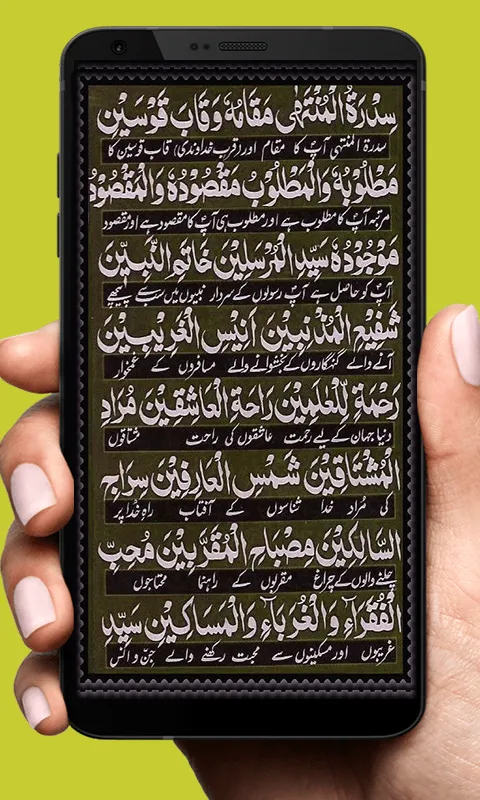 سِدْرَةُ الْمُنْتَهٰى مَقَامُهٗ وَقَابَ قَوْسَيْنِ
سدرۃ المنتہیٰ آپؐ کا مقام اور (قرب خداوندی) قاب قوسین کا
مَطْلُوْبُهٗ وَالْمَطْلُوْبُ مَقْصُوْدُهٗ وَالْمَقْصُوْدُ
مرتبہ آپؐ کا مطلوب ہے اور مطلوب ہی آپؐ کا مقصود ہے اور مقصود
مَوْجُوْدُهٗ سَيِّدِ الْمُرْسَلِيْنَ خَاتَمِ النَّبِيّيْنَ
آپؐ کو حاصل ہے آپؐ رسولوں کے سردار نبیوں میں سب سے پیچھے
شَفِيْعِ الْمُذْنِبِيْنَ اَنِيْسِ الْغَرِيْبِيْنَ
آنے والے گنہگاروں کے بخشوانے والے مسافروں کے غمخوار
رَحْمَةٍ لِّلْعٰلَمِيْنَ رَاحَةِ الْعَاشِقِيْنَ مُرَادِ
دنیا جہان کے لیے رحمت عاشقوں کی راحت مشتاقوں
الْمُشْتَاقِيْنَ شَمْسِ الْعَارِفِيْنَ سِرَاجِ
کی مراد خدا شناسوں کے آفتاب راہِ خدا پر
السَّالِكِيْنَ مِصْبَاحِ الْمُقَرَّبِيْنَ مُحِبِّ
چلنے والوں کے چراغ مقربوں کے راہنما محتاجوں
الْفُقَرَآءِ وَالْغُرَبَآءِ وَالْمَسَاكِيْنِ سَيِّدِ
غریبوں اور مسکینوں سے محبت رکھنے والے جن و انس